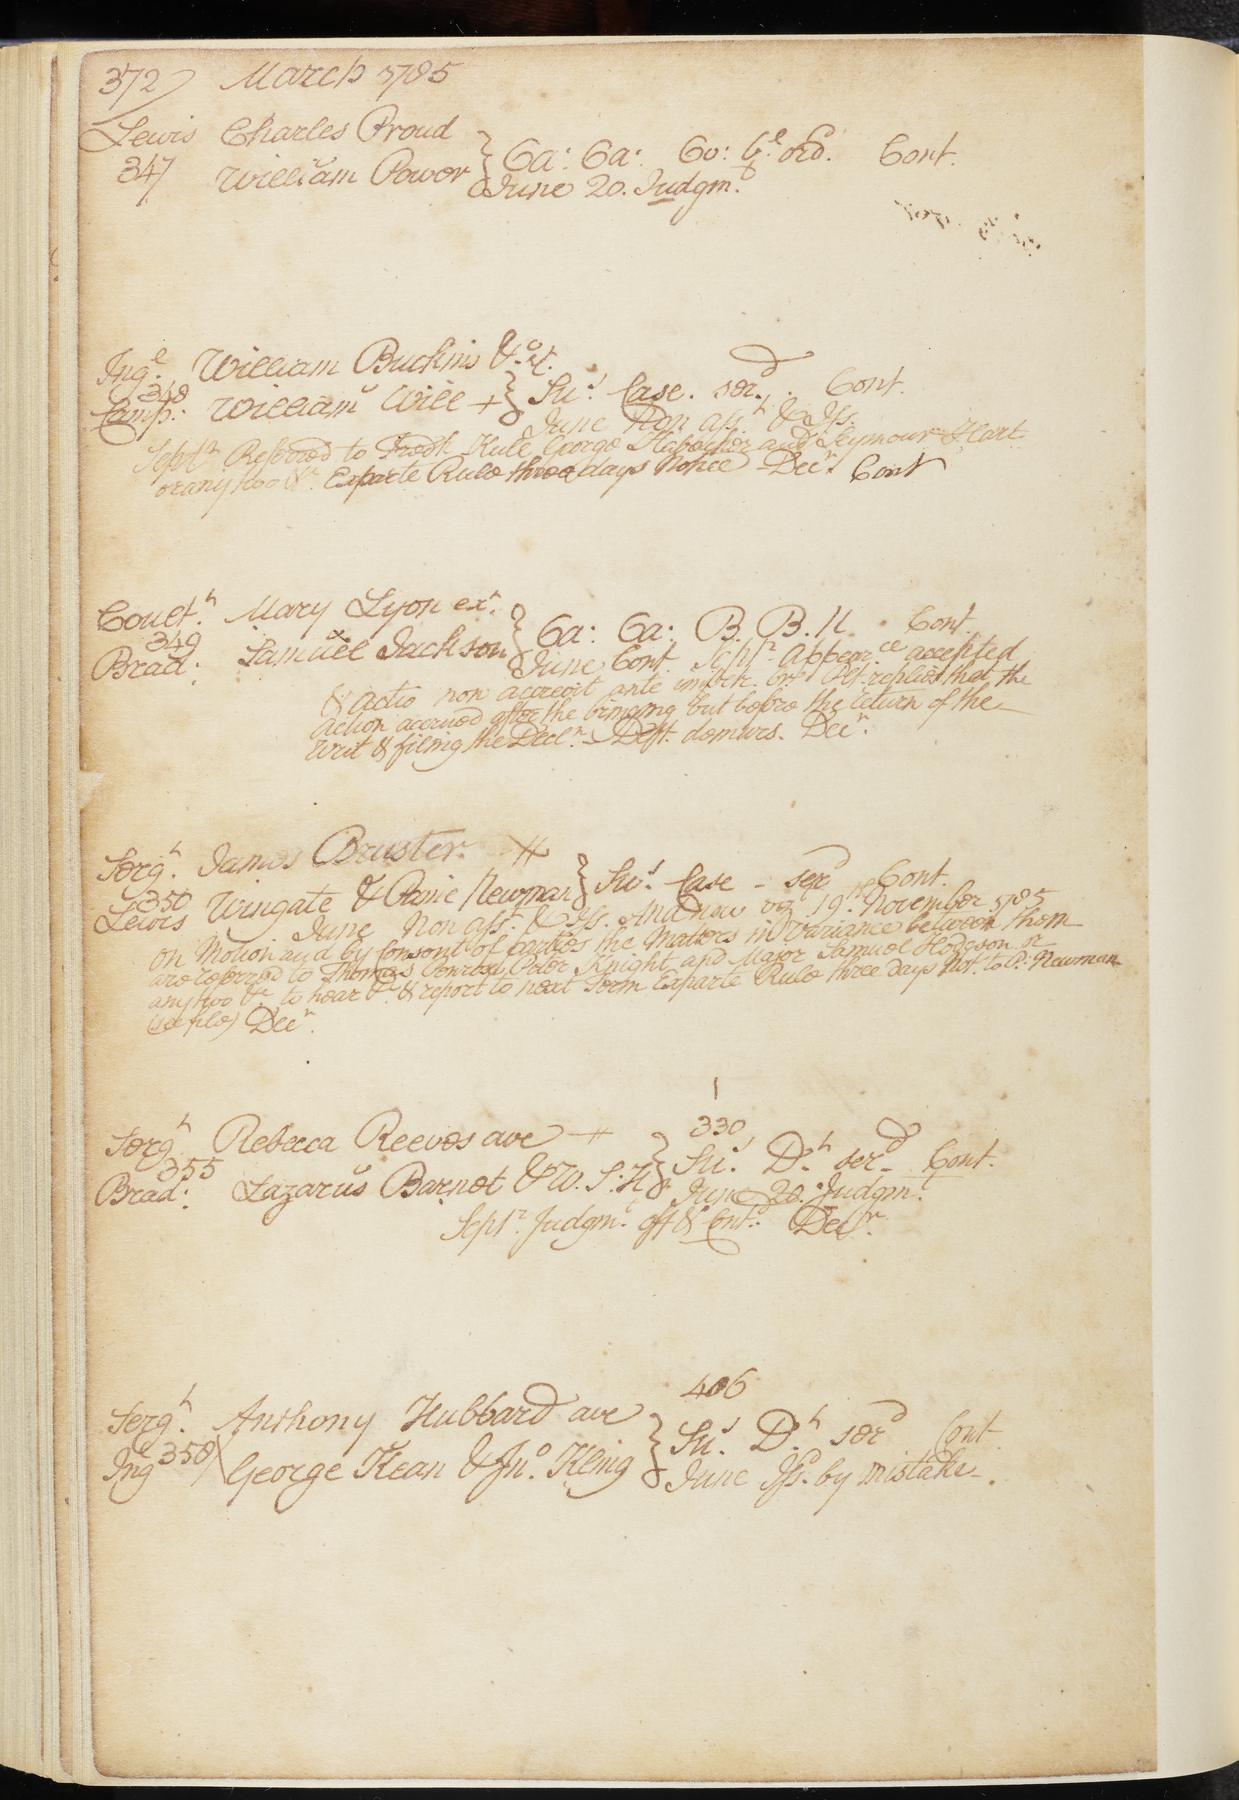 372 March 1785
Lewis Charles Proud
347 William Power } Ca: Ca: Co: C.l ord. Cont.
June 20. Judgm.t
Ing.l William Buckins & ux.
348
Camp: William Will + } Su.s Case. ser.d Cont.
June Non ass.t & Iss.
Sept.r Referred to Fred.k Kule George and Seymour Hart
or any two &c. Exparte Rule three days Notice Dec.r Cont
Coult.h Mary Lyon ex.x
349
Brad: Samuel Jackson } Ca: Ca: B. B. H. Cont.
June Cont. Sept.r Appear.ce accepted
& actio non accrevit ante Plt. replies that the
Action accrued after the bringing but before the return of the
Writ & filing the Decl.n Deft. demurs. Dec.r
Serg.t James Bruster. #
350
Lewis Wingate & Paine Newman } Su.s Case - ser.d Cont.
June Non ass.t & Iss. And now viz.t 19.th November 1785
on Motion and by Consent of parties the Matters in Variance between them
are referred to Thomas Conrad, Peter Knight and Major Samuel Hodgson or
any two &c. to hear &c. & report to next Term Exparte Rule three Days Not. to P. Newman
(see file) Dec.r
1
Serg.t Rebecca Reeves ave # 330
355
Brad: Lazarus Barnet & W. S. H } Su.s D.t ser.d Cont.
June 20. Judgm.t
Sept.r Judgm.t off & Cont.d Dec.r
406
Serg.t Anthony Hubbard ave
Ing 358 George Kean & Jn.o Kling } Su.s D.t ser.d Cont.
June Iss. by mistake.